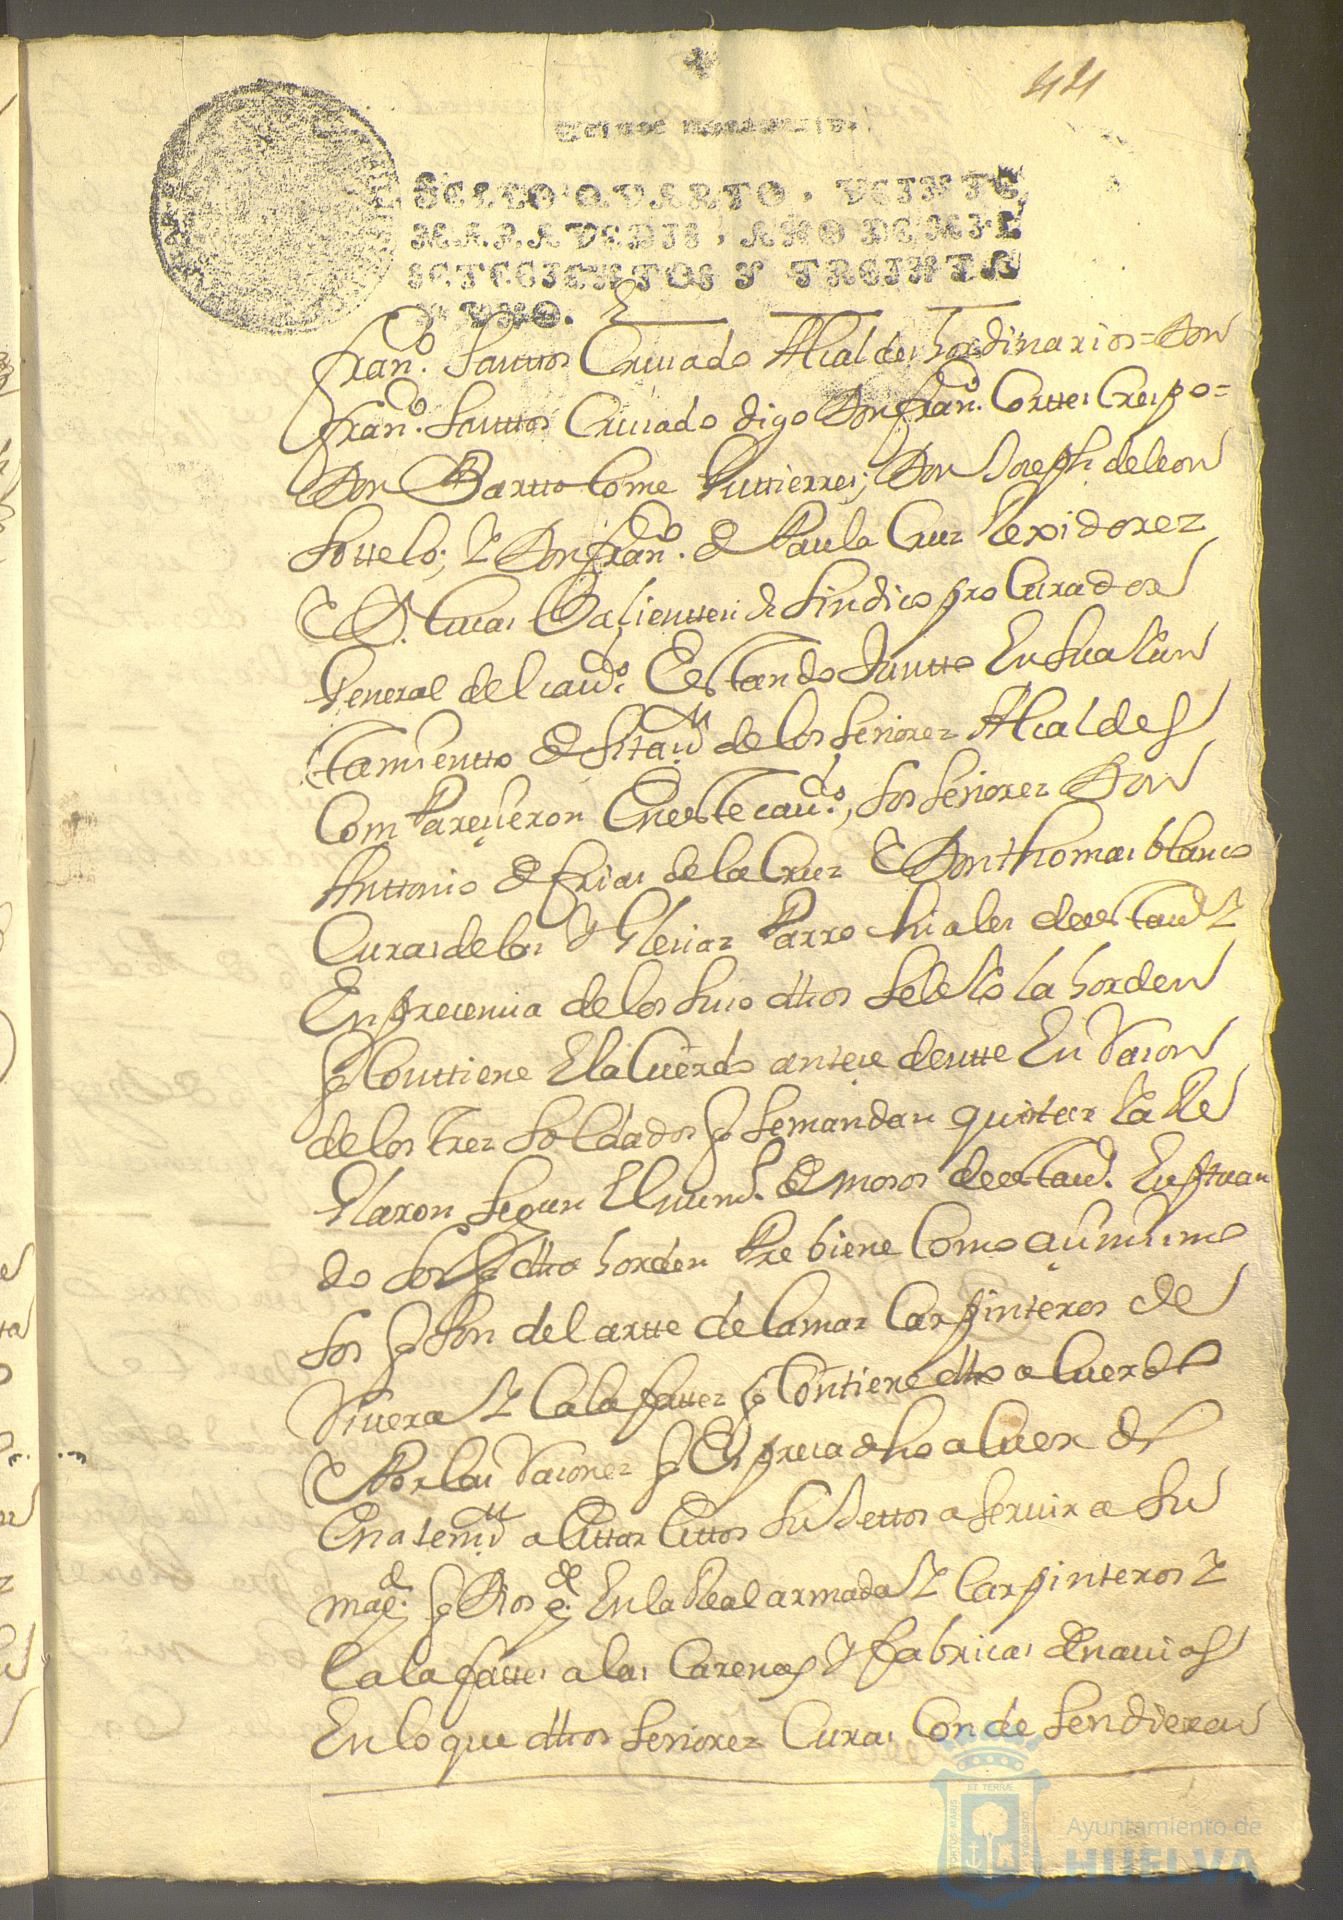 44
Veinte marauedis.
SELLO QVARTO, VEINTE
MARAVEDIS, AÑO DE MIL
SETECIENTOS Y TREINTA
Y VNO.
fran.co Santtos Cruzado Alcaldes hordinarios = Don
fran.co Santtos Cruzado digo Don fran.co Corttes Crespo =
Don Barttolome Gutierres; Don Joseph de leon
Sottelo; Y Don fran.co de Paula Cruz Rexidorez
E D. Lucas Balientte Sindico procurador
General del cau.do Estando Juntto En su aiun
tamientto de Sitaz.n de los Señorez Alcaldes
Compareçieron En este cau.do, los Señorez Don
Anttonio de frias de la Cruz E Don thomas blanco
Curas de las Yglecias Parrochiales de esta v.a Y
En precencia de los suso dhos se leio la horden
q Conttiene El acuerdo anteçedentte En Racon
de los trez Soldados q se mandan quintar Y a Re
glaron segun El num.o de mosos de esta v.a En straan
do los q dha horden Prebiene Como açimismo
los q son del artte de la mar Carpinteros de
Riuera Y Calafattez q Contiene dho acuerdo
E Por las Raconez q Espreca dho acuerdo
En atenz.n a esttar esttos Sujettos a seruir a Su
mag.d q Dios g.de En la Real armada Y Carpinteros Y
Calafattes a las Carenas Y fabricas de nauios
En lo que dhos Señorez Curas Condesendieran
PORTUS MARIS ET TERRAE CUSTODIA
Ayuntamiento de
HUELVA